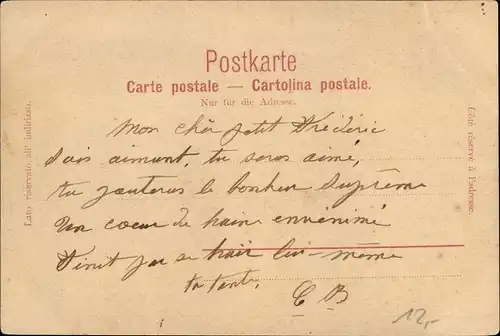 Postkarte
Carte postale — Cartolina postale.
Nur für die Adresse.
Lato riservato all' indirizzo.
Côté réservé à l'adresse.
Mon chèr petit Frédéric
Sois aimant, tu seras aimé,
tu gouteras le bonheur suprême
Un coeur de haine envénimé
Finit par se haïr lui-même
ta tante,
C B
12,-